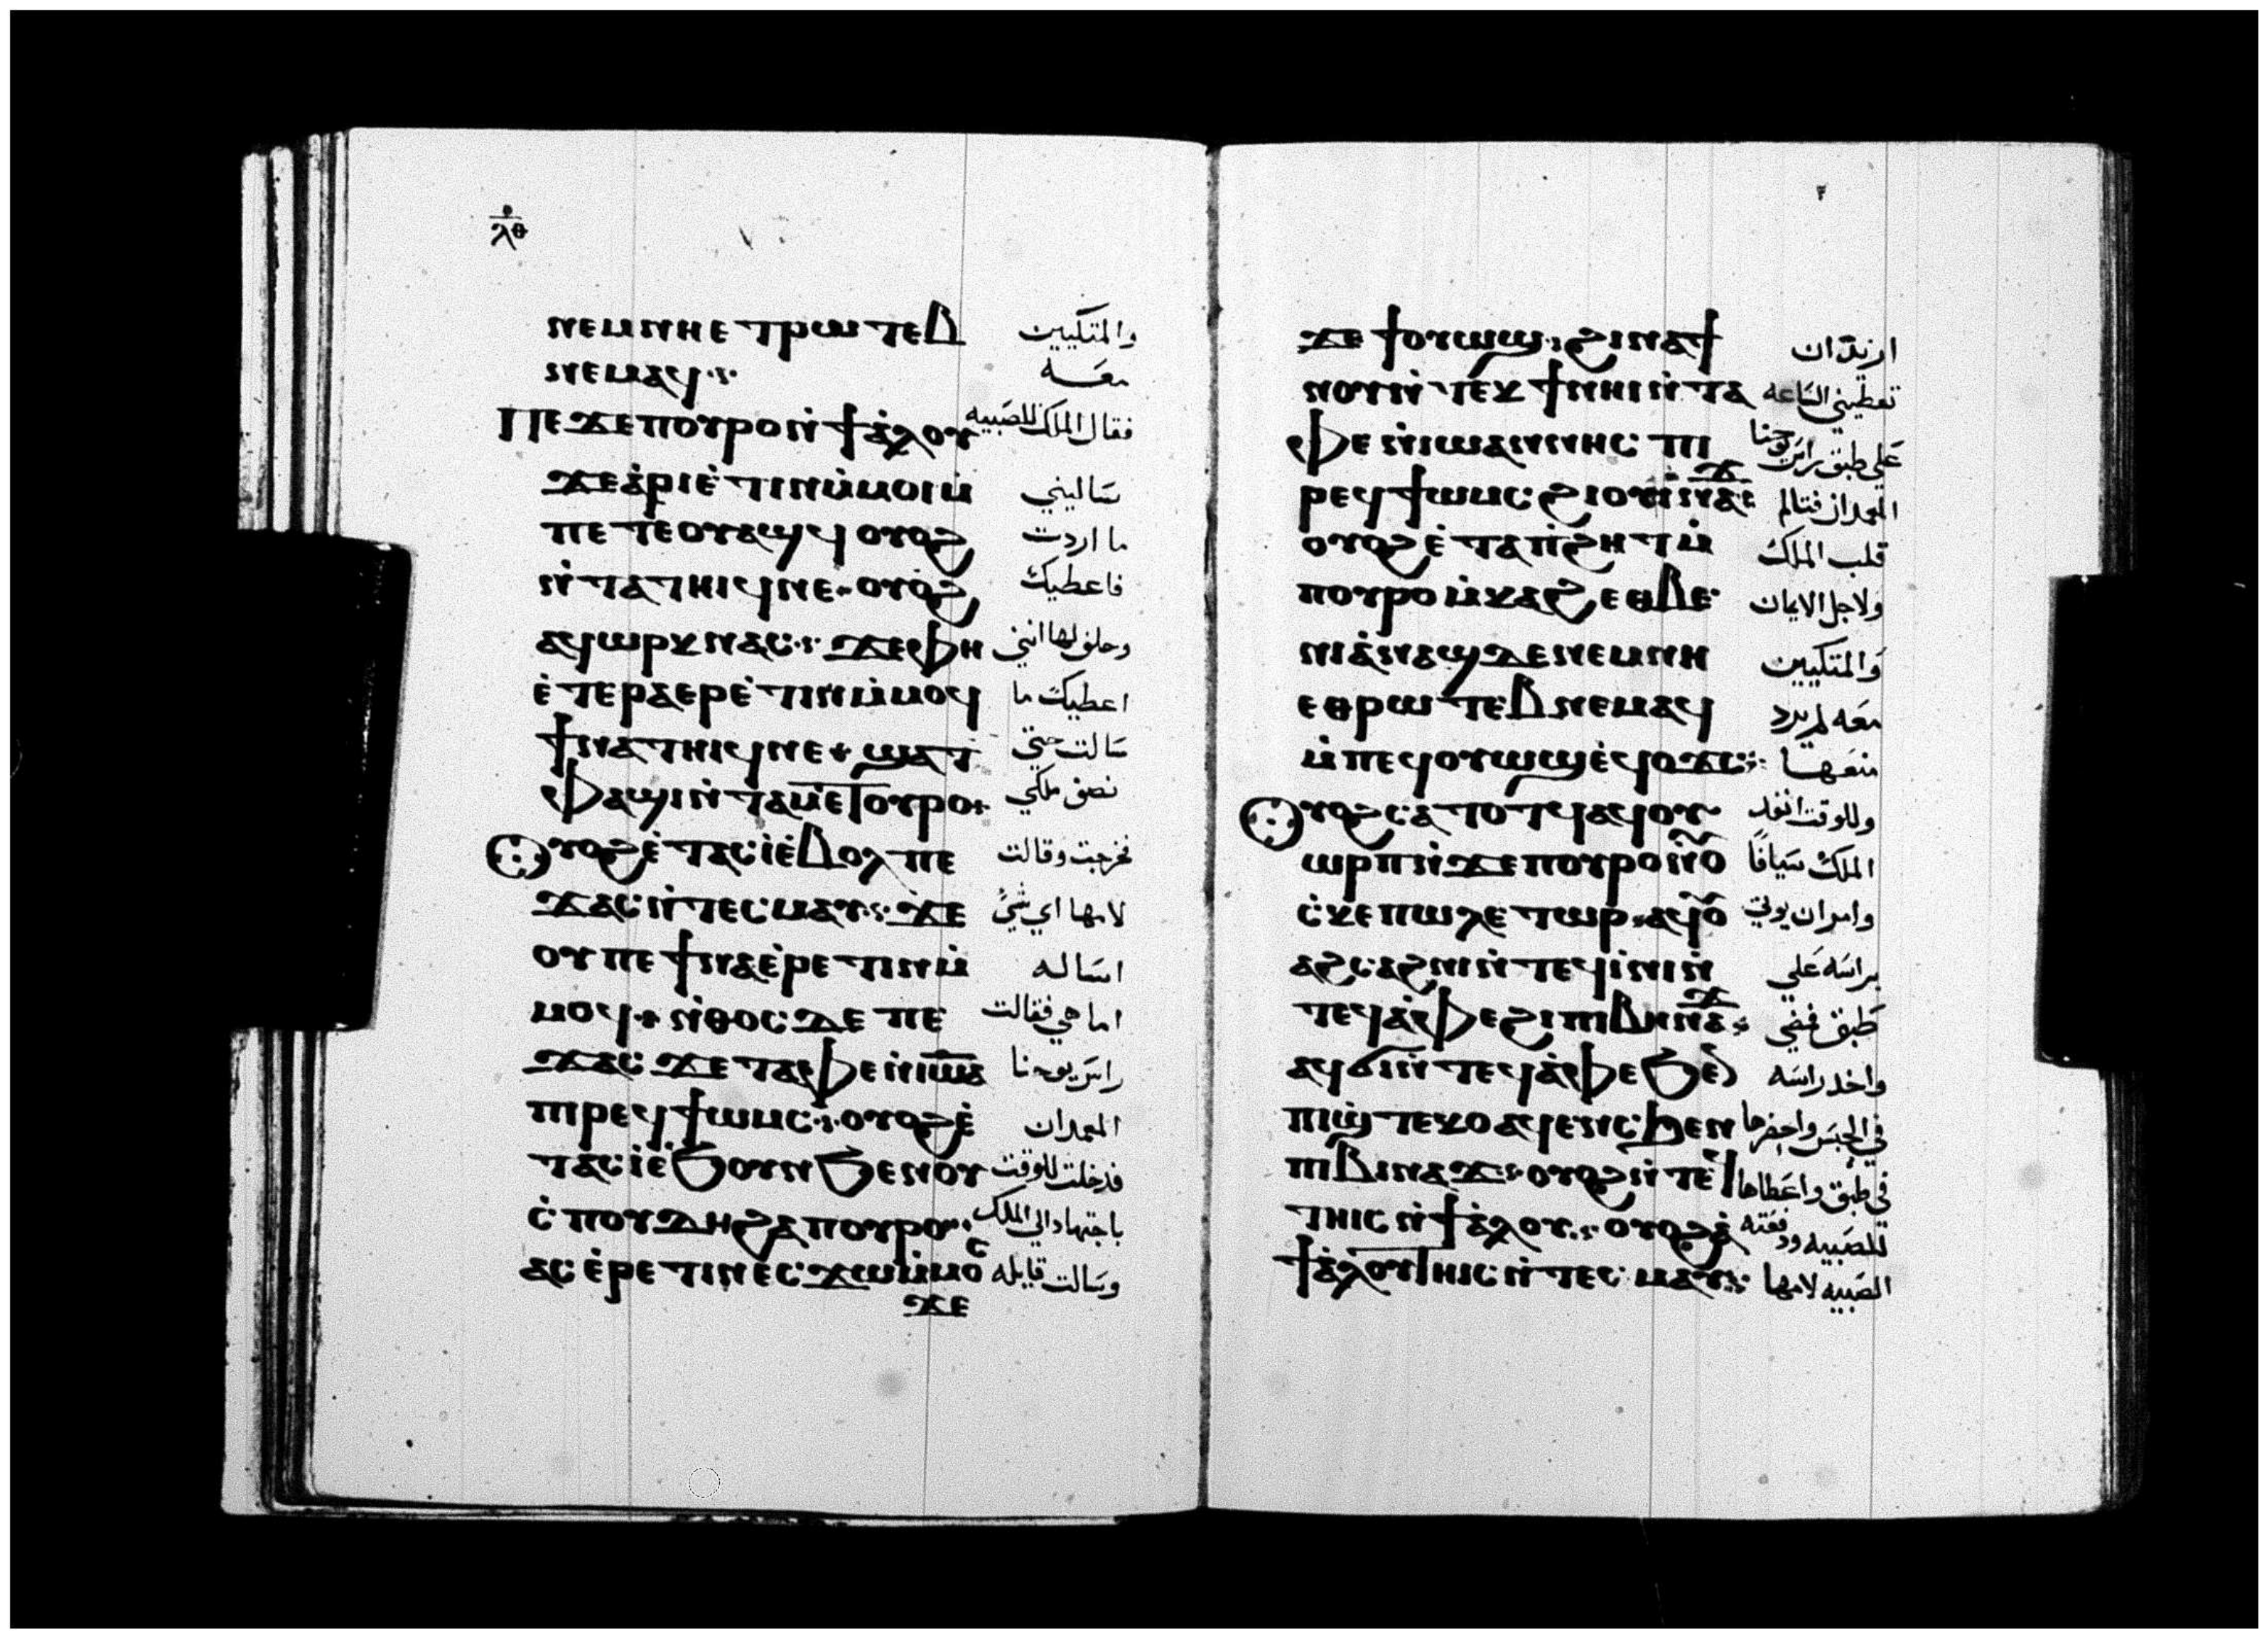 ⲗⲑ
ⲛⲉⲙⲛⲏⲉⲧⲣⲱⲧⲉⲃ والمتكيين
ⲛⲉⲙⲁϥ معه
Ⲡⲉϫⲉⲡⲟⲩⲣⲟⲛ̀ϯⲁ̀ⲗⲟⲩ فقال الملك للصبيه
ϫⲉⲁ̀ⲣⲓⲉ̀ⲧⲓⲛⲙ̀ⲙⲟⲓⲙ̀ ساليني
ⲡⲉⲧⲉⲟⲩⲁϣϥ ⲟⲩⲟϩ ما اردت
ⲛ̀ⲧⲁⲧⲏⲓϥⲛⲉ ⲟⲩⲟϩ فاعطيك
ⲁϥⲱⲣⲕⲛⲁⲥ ϫⲉⲫⲏ وحلف لها انني
ⲉ̀ⲧⲉⲣⲁⲉⲣⲉ̀ⲧⲓⲛⲙ̀ⲙⲟϥ اعطيك ما
ϯⲛⲁⲧⲏⲓϥⲛⲉ ϣⲁⲧ سالت حتي
ⲫⲁϣⲓⲛ̀ⲧⲁⲙⲉⲧⲟⲩⲣⲟ نصف ملكي
Ⲟⲩⲟϩⲉ̀ⲧⲁⲥⲓ̀ⲉ̀ⲃⲟⲗⲡⲉ فخرجت وقالت
ϫⲁⲥⲛ̀ⲧⲉⲥⲙⲁⲩ ϫⲉ لامها اي شي
ⲟⲩⲡⲉϯⲛⲁⲉ̀ⲣⲉⲧⲓⲛⲙ̀ اساله
ⲙⲟϥ ⲛ̀ⲑⲟⲥⲇⲉⲡⲉ اما هي فقالت
ϫⲁⲥϫⲉⲧⲁⲫⲉⲛ̀ⲓⲱⲁ راس يوحنا
ⲡⲓⲣⲉϥϯⲱⲙⲥ ⲟⲩⲟϩⲉ̀ المعمدان
ⲧⲁⲥⲓ̀ⲉ̀ϧⲟⲩⲛϧⲉⲛⲟⲩ فدخلت للوقت
ⲥ̀ⲡⲟⲩⲇⲏϩⲁⲡⲟⲩⲣⲟ باجتهاد الي الملك
ⲁⲥⲉ̀ⲣⲉⲧⲓⲛⲉⲥϫⲱⲙ̀ⲙⲟⲥ وسالت قايله
ϫⲉ
ϫⲉϯⲟⲩⲱϣ ϩⲓⲛⲁϯ اريد ان
ⲛⲟⲩⲛ̀ⲧⲉⲕϯⲛⲏⲓⲛ̀ⲧⲁ تعطيني الساعه
ⲫⲉⲛ̀ⲓⲱⲁⲛⲛⲏⲥ ⲡⲓ علي طبق راس يوحنا
ⲣⲉϥϯⲱⲙⲥ ϩⲓⲟⲩⲃⲓⲛⲁϫ المعمدان فتالم
ⲟⲩⲟϩⲉ̀ⲧⲁⲡ̀ϩⲏⲧⲙ̀ قلب الملك
ⲡⲟⲩⲣⲟⲙ̀ⲕⲁϩⲉⲑⲃⲉ ولاجل الايمان
ⲛⲓⲁ̀ⲛⲁϣⲇⲉⲛⲉⲙⲛⲏ والمتكيين
ⲉⲑⲣⲱⲧⲉⲃⲛⲉⲙⲁϥ معه لم يرد
ⲙ̀ⲡⲉϥⲟⲩⲱϣⲉ̀ϥⲟϫⲥ منعها
Ⲟⲩⲟϩⲥⲁⲧⲟⲧϥⲁϥⲟⲩ وللوقت انفد
ⲱⲣⲡⲛ̀ϫⲉⲡⲟⲩⲣⲟⲛ̀ⲟⲩ الملك سيافا
ⲥ̀ⲕⲉⲡⲱⲗⲉⲧⲱⲣ ⲁϥⲟⲩ وامر ان يوتي
ⲁϩⲥⲁϩⲛⲓⲛ̀ⲧⲉϥⲓ̀ⲛⲓⲛ̀ براسه علي
ⲧⲉϥⲁ̀ⲫⲉϩⲓⲡⲓⲃⲓⲛⲁϫ طبق فمضي
ⲁϥϭⲓⲛ̀ⲧⲉϥⲁ̀ⲫⲉϧⲉⲛ واخد راسه
ⲡⲓϣ̀ⲧⲉⲕⲟⲁϥⲉⲛⲥϧⲉⲛ في الحبس واحضرها
ⲡⲓⲃⲓⲛⲁϫ ⲟⲩⲟϩⲛ̀ⲧⲉϥ في طبق واعطاها
ⲧⲏⲓⲥⲛ̀ϯⲁ̀ⲗⲟⲩ ⲟⲩⲟϩⲁ̀ للصبيه ودفعته
ϯⲁ̀ⲗⲟⲩⲧⲏⲓⲥⲛ̀ⲧⲉⲥⲙⲁⲩ الصبيه لامها